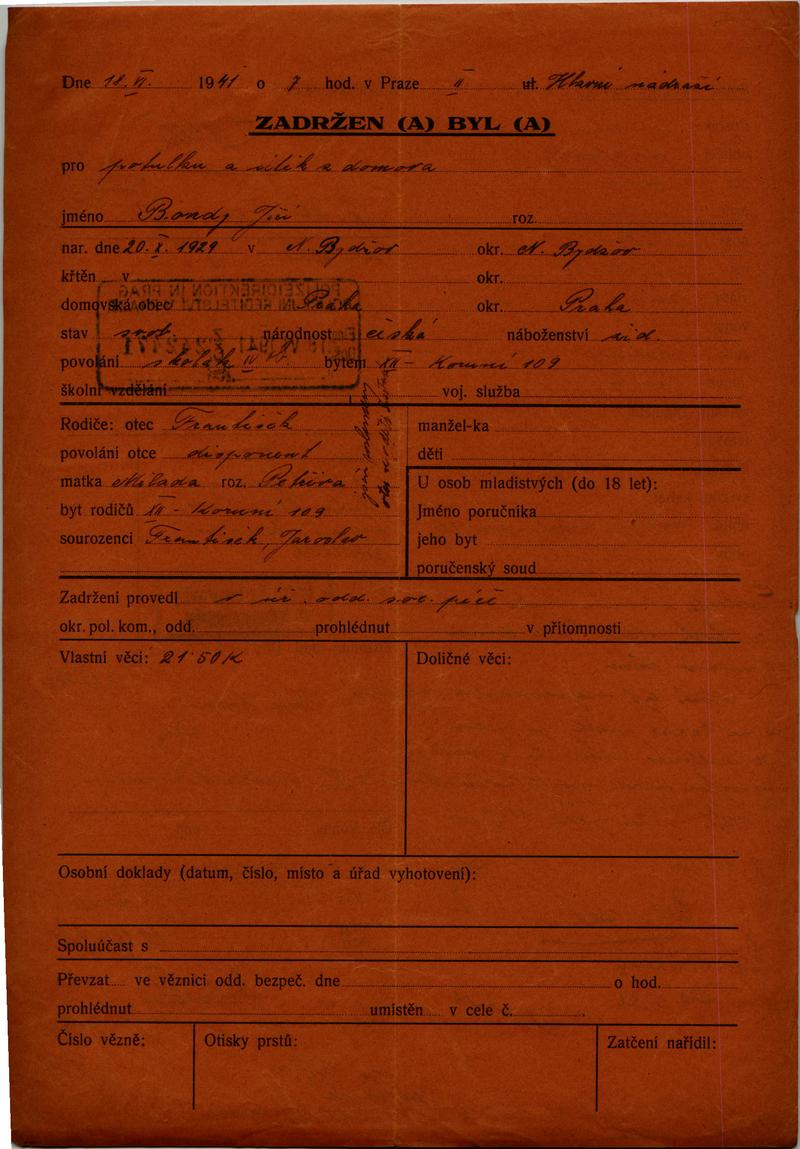 Dne 18. VI. 1941 o 7 hod. v Praze II ul. Hlavní nádraží
ZADRŽEN (A) BYL (A)
pro potulku a útěk z domova
jméno Bondy Jiří roz.
nar. dne 20. X. 1929 v N. Bydžov okr. N. Bydžov
křtěn v okr.
domovská obec Praha okr. Praha
stav svob. národnost česká náboženství žid.
povolání školák IV bytem XII - Korunní 109
školní vzdělání voj. služba
Rodiče: otec František
manžel-ka
povolání otce disponent
děti
matka Milada roz.
U osob mladistvých (do 18 let):
byt rodičů XII - Korunní 109
Jméno poručníka
sourozenci František, Jaroslav
jeho byt
poručenský soud
Zadržení provedl odd. soc. péče
okr. pol. kom., odd. prohlédnut v přítomnosti
Vlastní věci: 21·50 K
Doličné věci:
Osobní doklady (datum, číslo, místo a úřad vyhotovení):
Spoluúčast s
Převzat ve věznici odd. bezpeč. dne o hod.
prohlédnut umístěn v cele č.
Číslo vězně: Otisky prstů: Zatčení nařídil: